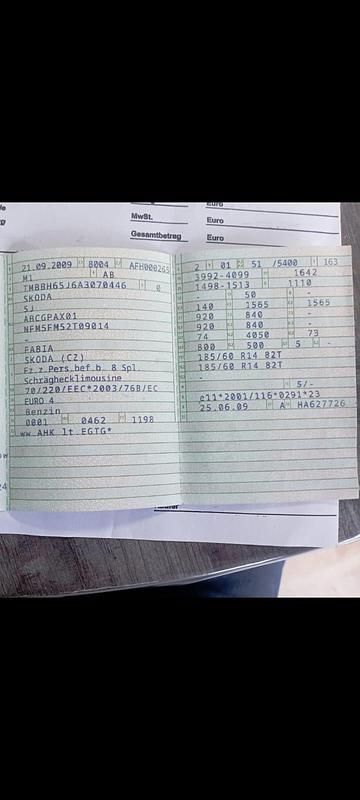 Euro
MwSt.
Euro
Gesamtbetrag
Euro
21.09.2009 8004 AFH000265
M1 AB
TMBBH65J6A3070446 0
SKODA
5J
ABCGPAX01
NFM5FM52T09014
-
FABIA
SKODA (CZ)
Fz.z.Pers.bef.b. 8 Spl.
Schrägheckllimousine
70/220/EEC*2003/76B/EC
EURO 4
Benzin
0001 0462 1198
ww.AHK lt.EGTG*
2 01 51 /5400 163
3992-4099 1642
1498-1513 1110
- 50 -
140 1565 1565
920 840 -
920 840 -
74 4050 73
800 500 5 -
185/60 R14 82T
185/60 R14 82T
-
- 5/-
e11*2001/116*0291*23
25.06.09 A HA627726